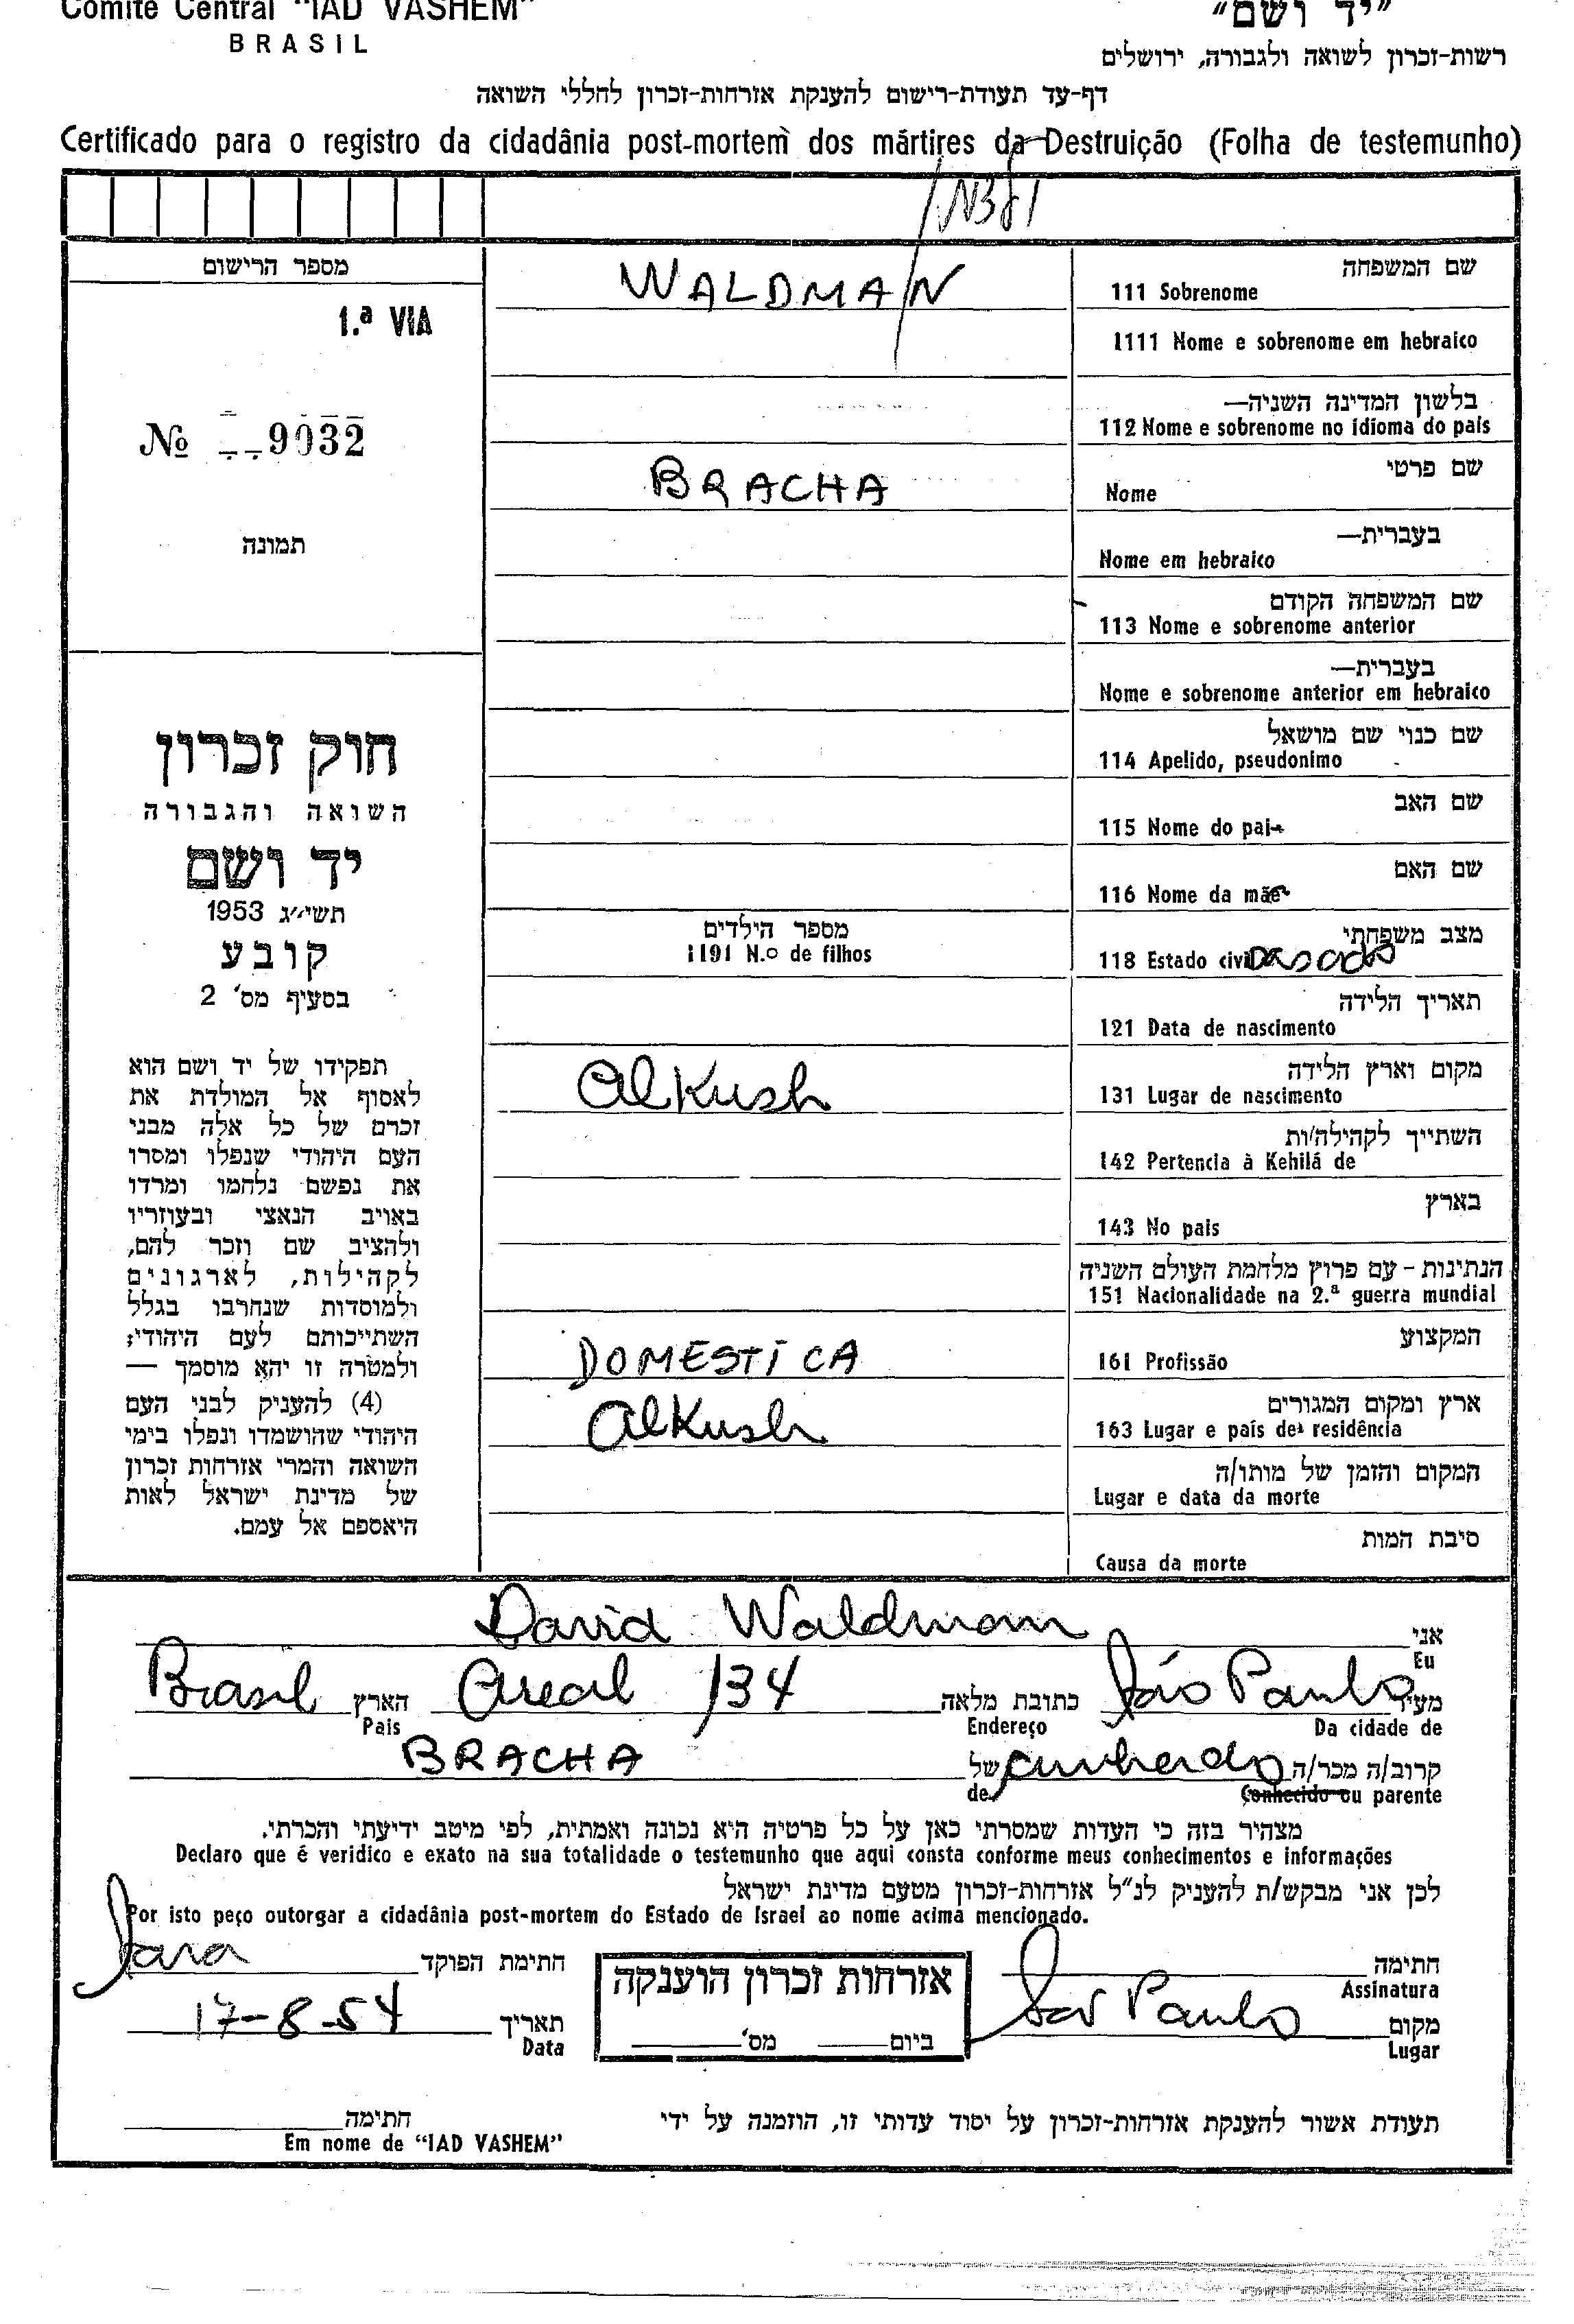 Comité Central "IAD VASHEM"
BRASIL
"יד ושם"
רשות-זכרון לשואה ולגבורה, ירושלים
דף-עד תעודת-רישום להענקת אזרחות-זכרון לחללי השואה
Certificado para o registro da cidadânia post-mortem dos mártires da Destruição (Folha de testemunho)
מספר הרישום
1.ª VIA
№ 9032
תמונה
חוק זכרון
השואה והגבורה
יד ושם
תשי״ג 1953
קובע
בסעיף מס׳ 2
תפקידו של יד ושם הוא
לאסוף אל המולדת את
זכרם של כל אלה מבני
העם היהודי שנפלו ומסרו
את נפשם נלחמו ומרדו
באויב הנאצי ובעוזריו
ולהציב שם וזכר להם,
לקהילות, לארגונים
ולמוסדות שנחרבו בגלל
השתייכותם לעם היהודי;
ולמטרה זו יהא מוסמך —
(4) להעניק לבני העם
היהודי שהושמדו ונפלו בימי
השואה והמרי אזרחות זכרון
של מדינת ישראל לאות
היאספם אל עמם.
שם המשפחה
111 Sobrenome WALDMAN
1111 Nome e sobrenome em hebraico
בלשון המדינה השניה—
112 Nome e sobrenome no idioma do país
שם פרטי
Nome BRACHA
בעברית—
Nome em hebraico
שם המשפחה הקודם
113 Nome e sobrenome anterior
בעברית—
Nome e sobrenome anterior em hebraico
שם כנוי שם מושאל
114 Apelido, pseudonimo
שם האב
115 Nome do pai
שם האם
116 Nome da mãe
מצב משפחתי
118 Estado civil casado
מספר הילדים
1191 N.º de filhos
תאריך הלידה
121 Data de nascimento
מקום וארץ הלידה
131 Lugar de nascimento Alkush
השתייך לקהילה/ות
142 Pertencia à Kehilá de
בארץ
143 No pais
הנתינות - עם פרוץ מלחמת העולם השניה
151 Nacionalidade na 2.ª guerra mundial
המקצוע
161 Profissão DOMESTICA
ארץ ומקום המגורים
163 Lugar e país de residência Alkush
המקום והזמן של מותו/ה
Lugar e data da morte
סיבת המות
Causa da morte
אני David Waldman
Eu
מעיר São Paulo כתובת מלאה Areal 134 הארץ Brasil
Da cidade de Endereço Pais
קרוב/ה מכר/ה cunhado של BRACHA
Conhecido ou parente de
מצהיר בזה כי העדות שמסרתי כאן על כל פרטיה היא נכונה ואמתית, לפי מיטב ידיעתי והכרתי.
Declaro que é veridico e exato na sua totalidade o testemunho que aqui consta conforme meus conhecimentos e informações
לכן אני מבקש/ת להעניק לנ״ל אזרחות-זכרון מטעם מדינת ישראל
Por isto peço outorgar a cidadânia post-mortem do Estado de Israel ao nome acima mencionado.
חתימה
Assinatura
חתימת הפוקד Sara
מקום São Paulo
Lugar
אזרחות זכרון הוענקה
ביום מס׳
תאריך 17-8-54
Data
תעודת אשור להענקת אזרחות-זכרון על יסוד עדותי זו, הוזמנה על ידי
חתימה
Em nome de "IAD VASHEM"